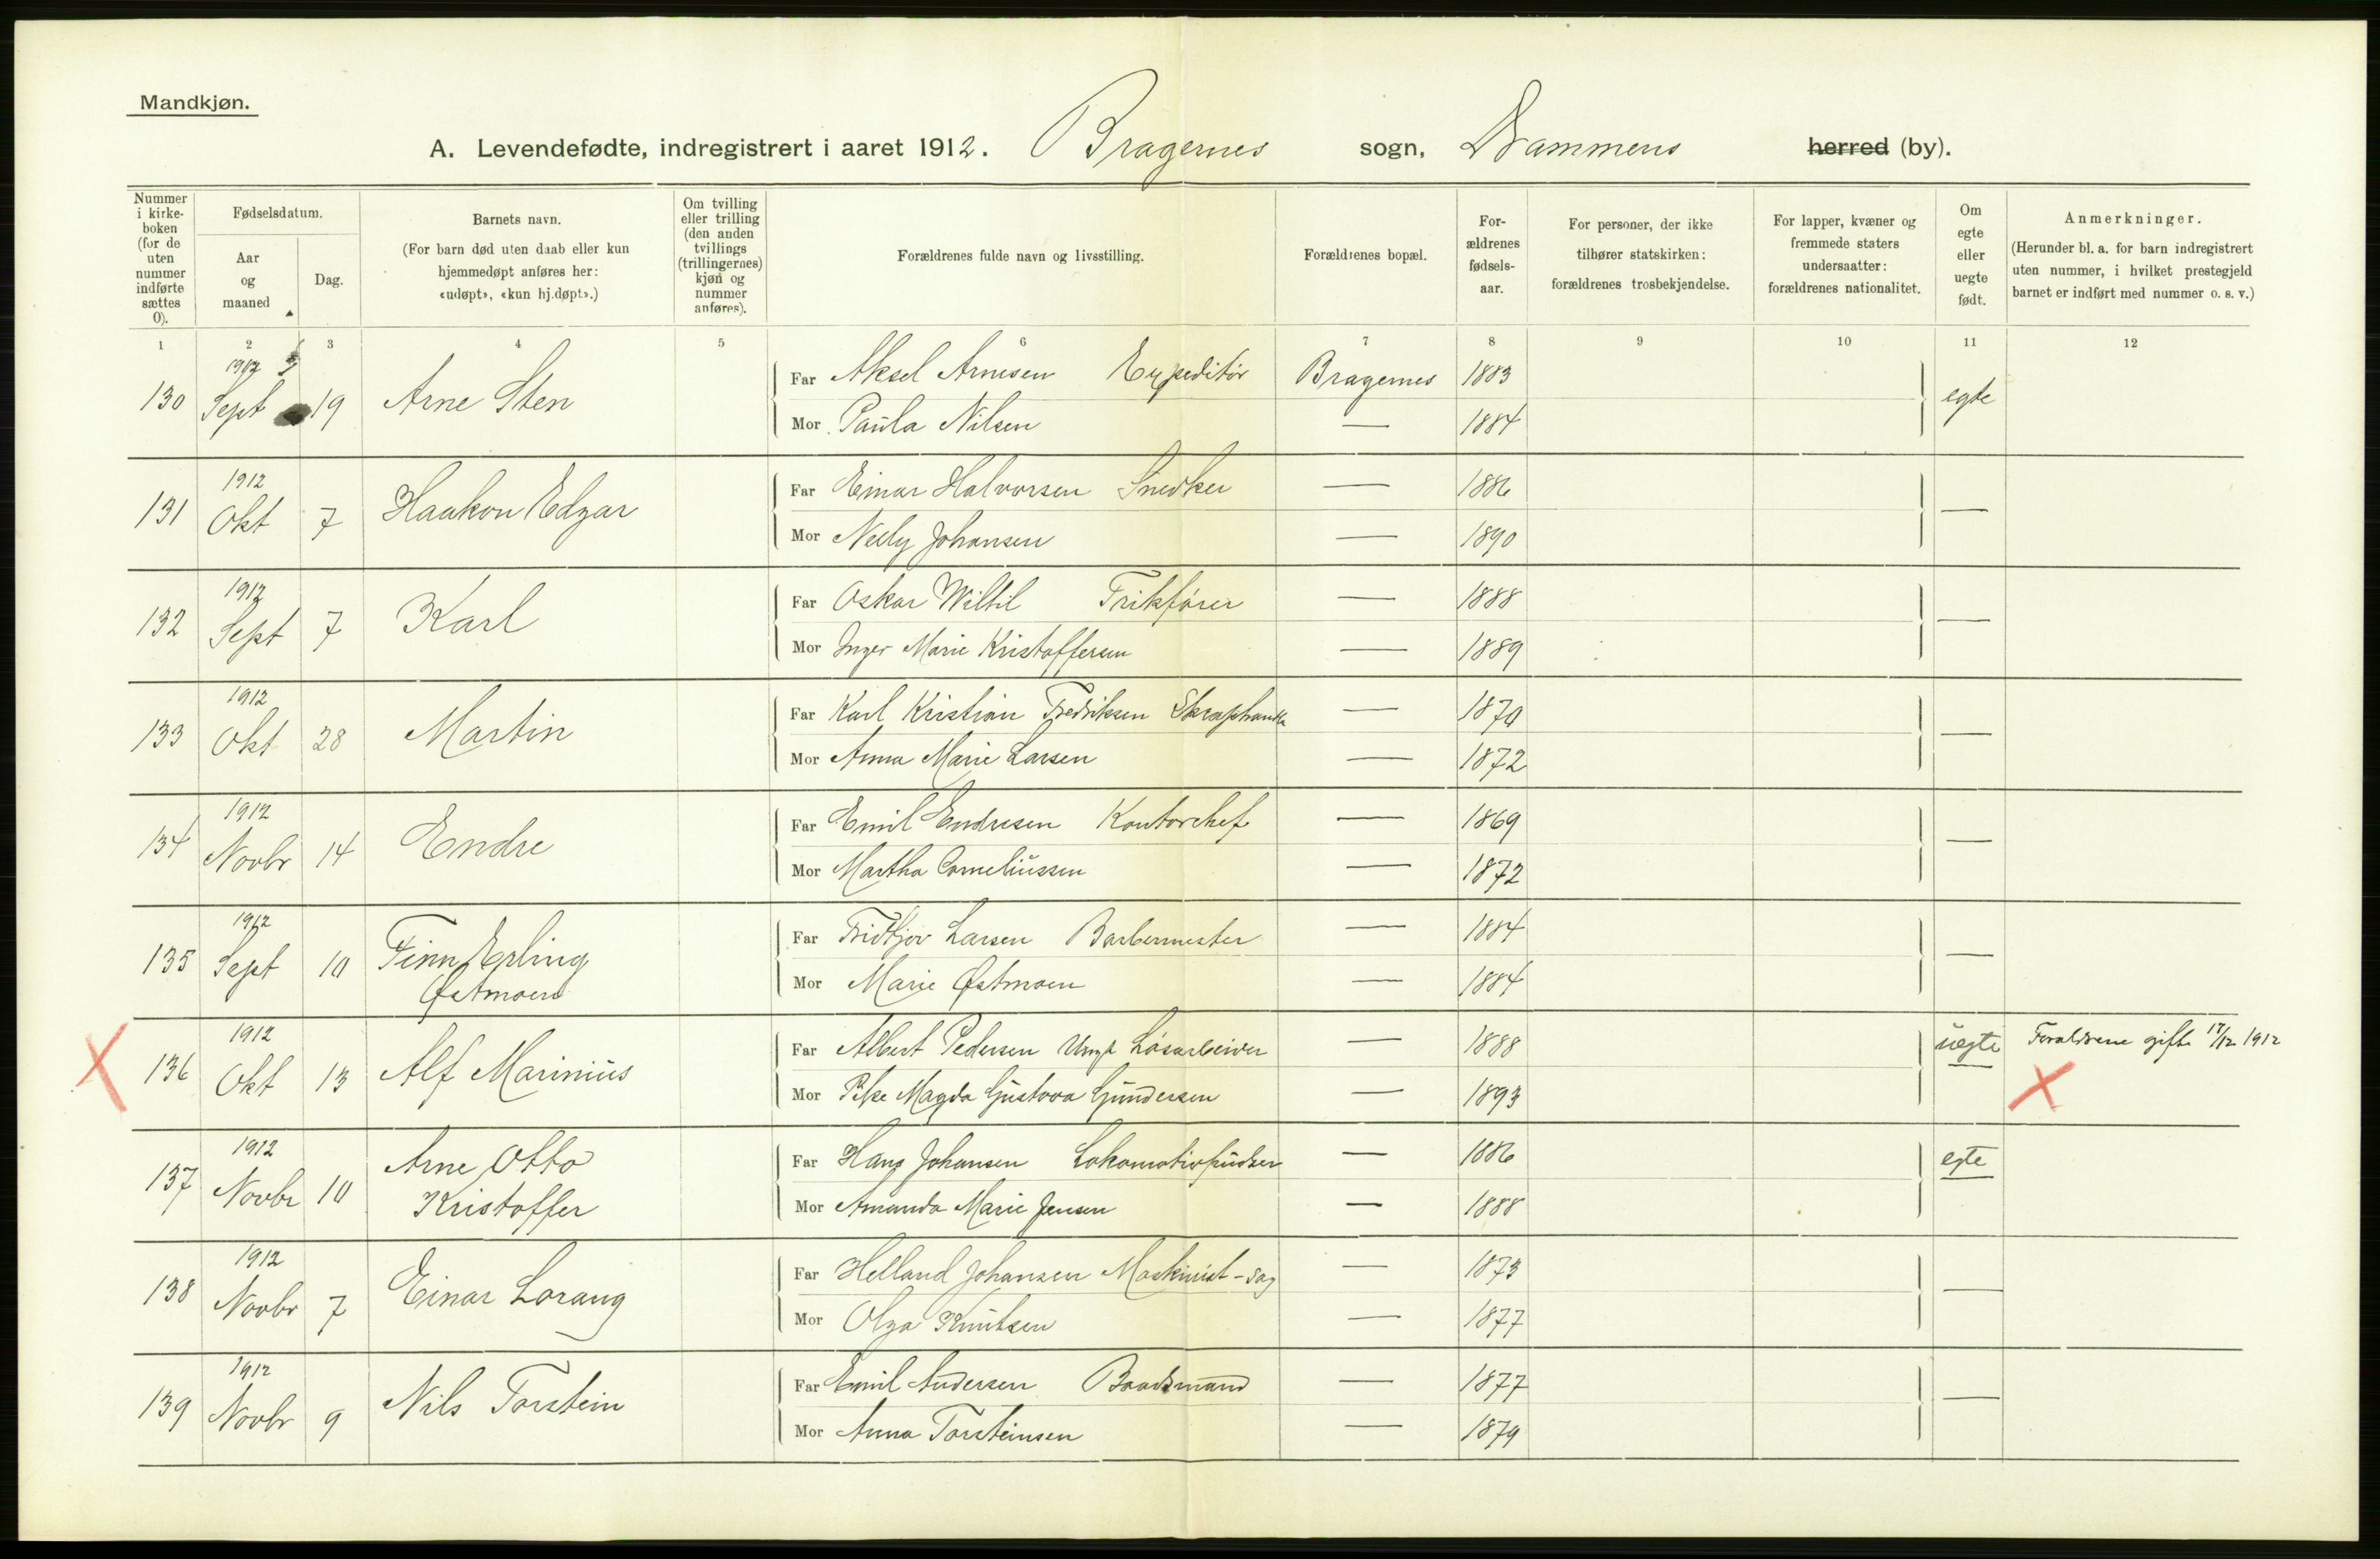 Mandkjøn.
A. Levendefødte, indregistrert i aaret 1912. Bragernes sogn, Drammens herred (by).
Nummer i kirkeboken (for de uten nummer indførte sættes 0).
Fødselsdatum.
Aar og maaned
Dag.
Barnets navn.
(For barn død uten daab eller kun hjemmedøpt anføres her: «udøpt», «kun hj.døpt».)
Om tvilling eller trilling (den anden tvillings (trillingernes) kjøn og nummer anføres).
Forældrenes fulde navn og livsstilling.
Forældrenes bopæl.
Forældrenes fødselsaar.
For personer, der ikke tilhører statskirken: forældrenes trosbekjendelse.
For lapper, kvæner og fremmede staters undersaatter: forældrenes nationalitet.
Om egte eller uegte født.
Anmerkninger.
(Herunder bl. a. for barn indregistrert uten nummer, i hvilket prestegjeld barnet er indført med nummer o. s. v.)
1 2 3 4 5 6 7 8 9 10 11 12
130 1912 Sept 19 Arne Sten Far Aksel Arnesen Expeditör Bragernes 1883 egte
Mor Paula Nilsen — 1884
131 1912 Okt 7 Haakon Edgar Far Einar Halvorsen Snedker — 1886 —
Mor Nelly Johansen — 1890
132 1912 Sept 7 Karl Far Oskar Wiltil — 1888 —
Mor Inger Marie Kristoffersen — 1889
133 1912 Okt 28 Martin Far Karl Kristian Fredriksen Skraphandl — 1870 —
Mor Anna Marie Larsen — 1872
134 1912 Novbr 14 Endre Far Emil Endresen Kontorchef — 1869 —
Mor Martha Corneliussen — 1872
135 1912 Sept 10 Finn Erling Østmoen Far Fridtjov Larsen Barbermester — 1884 —
Mor Marie Østmoen — 1884
136 1912 Okt 13 Alf Marinius Far Albert Pedersen Ungk Løsarbeider — 1888 uegte Forældrene gifte 17/12 1912
Mor Pike Magda Gustava Gundersen — 1893
137 1912 Novbr 10 Arne Otto Kristoffer Far Hans Johansen Lokomotivpudser — 1886 egte
Mor Amanda Marie Jensen — 1888
138 1912 Novbr 7 Einar Lorang Far Helland Johansen Maskinist - sag — 1873 —
Mor Olga Knutsen — 1877
139 1912 Novbr 9 Nils Torstein Far Emil Andersen Baadsmand — 1877 —
Mor Anna Torsteinsen — 1879